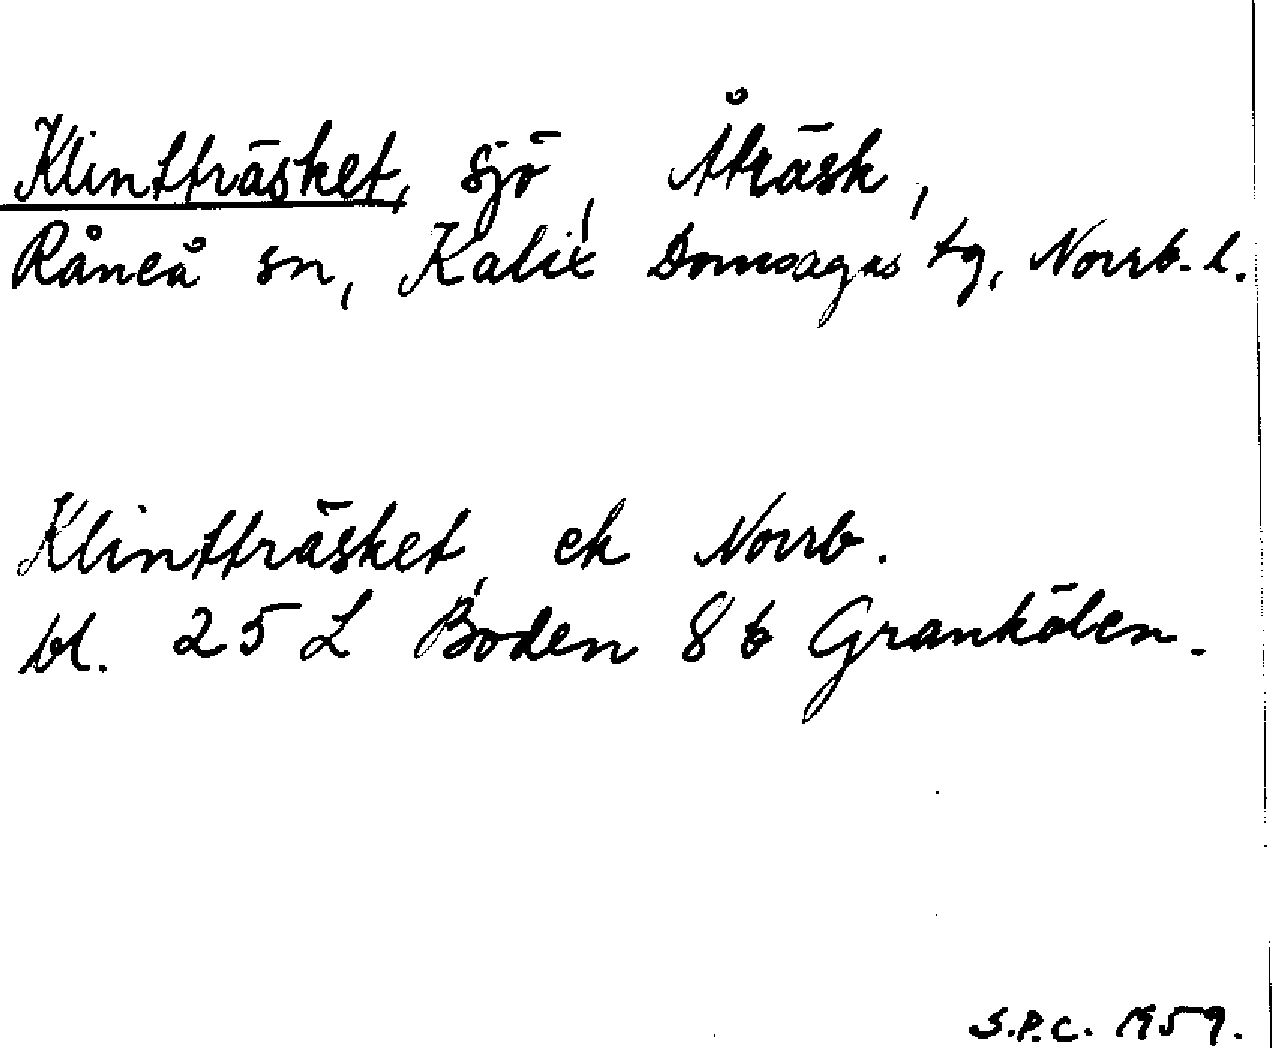 Klintträsket, sjö, Åträsk,
Råneå sn, Kalix Domsagas tg, Norrb. l.
Klintträsket, ek Norrb.
bl. 25 L Boden 8 b Grankölen.
S.P.C. 1959.